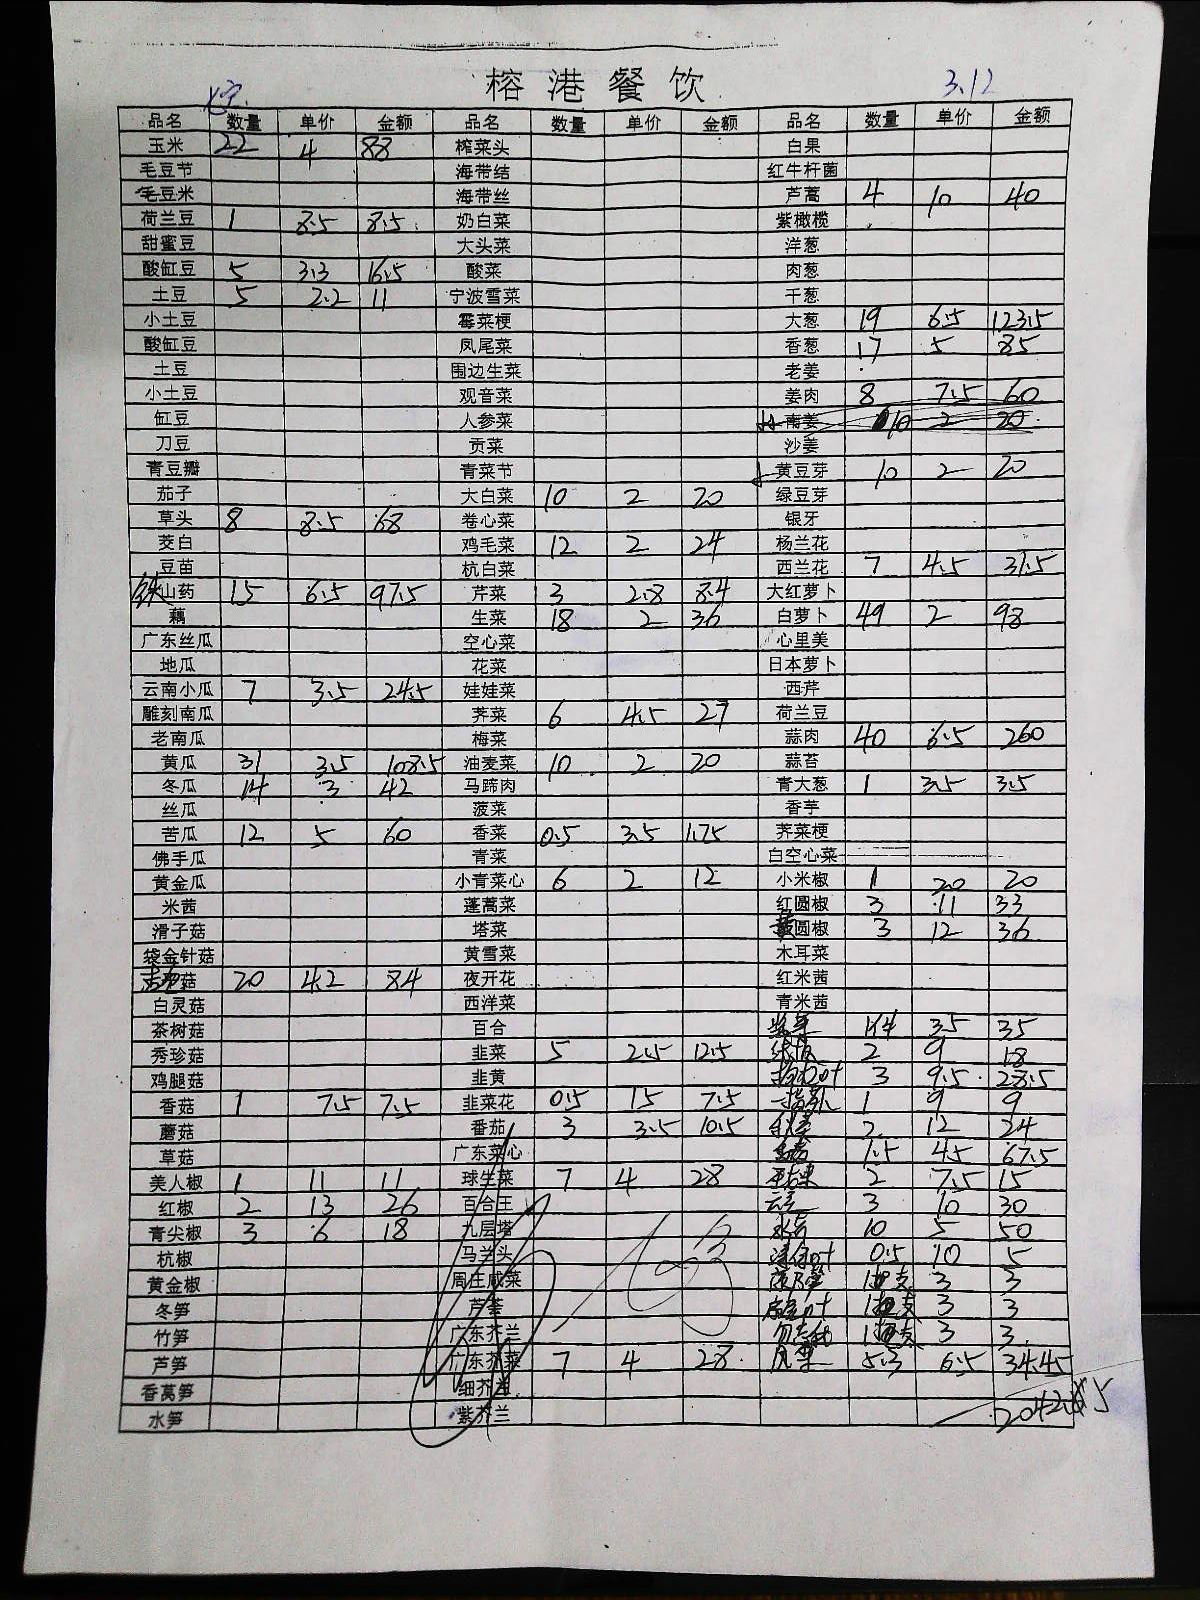 榕港餐饮
3.12
品名 数量 单价 金额 品名 数量 单价 金额 品名 数量 单价 金额
玉米 22 4 88 榨菜头 白果
毛豆节 海带结 红牛杆菌
毛豆米 海带丝 芦蒿 4 10 40
荷兰豆 1 8.5 8.5 奶白菜 紫橄榄
甜蜜豆 大头菜 洋葱
酸缸豆 5 3.3 16.5 酸菜 肉葱
土豆 5 2.2 11 宁波雪菜 干葱
小土豆 霉菜梗 大葱 19 6.5 123.5
酸缸豆 凤尾菜 香葱 17 5 85
土豆 围边生菜 老姜
小土豆 观音菜 姜肉 8 7.5 60
缸豆 人参菜 南姜 10 2 20
刀豆 贡菜 沙姜
青豆瓣 青菜节 黄豆芽 10 2 20
茄子 大白菜 10 2 20 绿豆芽
草头 8 8.5 68 卷心菜 银牙
茭白 鸡毛菜 12 2 24 杨兰花
豆苗 杭白菜 西兰花 7 4.5 31.5
铁山药 15 6.5 97.5 芹菜 3 2.8 8.4 大红萝卜
藕 生菜 18 2 36 白萝卜 49 2 98
广东丝瓜 空心菜 心里美
地瓜 花菜 日本萝卜
云南小瓜 7 3.5 24.5 娃娃菜 西芹
雕刻南瓜 荠菜 6 4.5 27 荷兰豆
老南瓜 梅菜 蒜肉 40 6.5 260
黄瓜 31 3.5 108.5 油麦菜 10 2 20 蒜苔
冬瓜 14 3 42 马蹄肉 青大葱 1 3.5 3.5
丝瓜 菠菜 香芋
苦瓜 12 5 60 香菜 0.5 3.5 1.75 荠菜梗
佛手瓜 青菜 白空心菜
黄金瓜 小青菜心 6 2 12 小米椒 1 20 20
米茜 蓬蒿菜 红圆椒 3 11 33
滑子菇 塔菜 黄圆椒 3 12 36
袋金针菇 黄雪菜 木耳菜
菇 20 4.2 84 夜开花 红米茜
白灵菇 西洋菜 青米茜
茶树菇 百合 35 35
秀珍菇 韭菜 5 2.5 12.5 2 9 18
鸡腿菇 韭黄 3 9.5 28.5
香菇 1 7.5 7.5 韭菜花 0.5 15 7.5 1 9 9
蘑菇 番茄 3 3.5 10.5 2 12 24
草菇 广东菜心 1.5 45 67.5
美人椒 1 11 11 球生菜 7 4 28 2 7.5 15
红椒 2 13 26 百合王 3 10 30
青尖椒 3 6 18 九层塔 10 5 50
杭椒 马兰头 0.5 10 5
黄金椒 周庄咸菜 3 3
冬笋 芦荟 3 3
竹笋 广东芥兰 3 3
芦笋 广东芥菜 7 4 28 5.3 6.5 34.45
香莴笋 细芥兰
水笋 紫芥兰